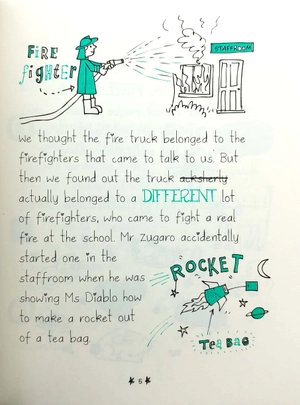 FIRE
fighter
STAFFROOM
We thought the fire truck belonged to the
firefighters that came to talk to us. But
then we found out the truck acksherly
actually belonged to a DIFFERENT lot
of firefighters, who came to fight a real
fire at the school. Mr Zugaro accidentally
started one in the
staffroom when he was
showing Ms Diablo how
to make a rocket out
of a tea bag.
ROCKET
TEA BAG
5